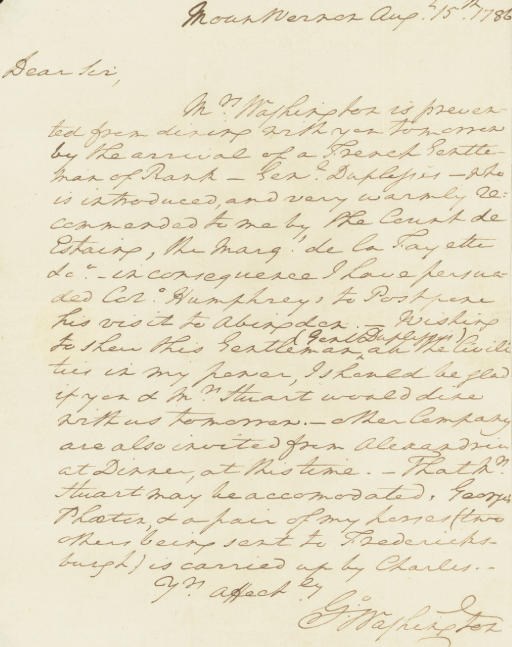 Mount Vernon Aug.t 15.th 1786
Dear Sir,
Mrs. Washington is preven-
ted from dining with you tomorrow
by the arrival of a French Gentle-
man of Rank – Genl. Duplessis – who
is introduced, and very warmly re=
commended to me by the Count de
Estaing, the Marqs. de la Fayette
&ca. – in consequence I have persua-
ded Colo. Humphreys to Postpone
his visit to Abingdon. – Wishing
to shew this Gentleman (Genl. Duplessis) all the Civili
ties in my power, I should be glad
if you & Mrs. Stuart would dine
with us tomorrow. – other Company
are also invited from Alexandria
at Dinner, at this time. – That Mrs.
Stuart may be accomodated, Georges
Phæton, & a pair of my horses (two
others being sent to Fredericks-
burgh) is carried up by Charles. –
Yrs. affectly
Go: Washington